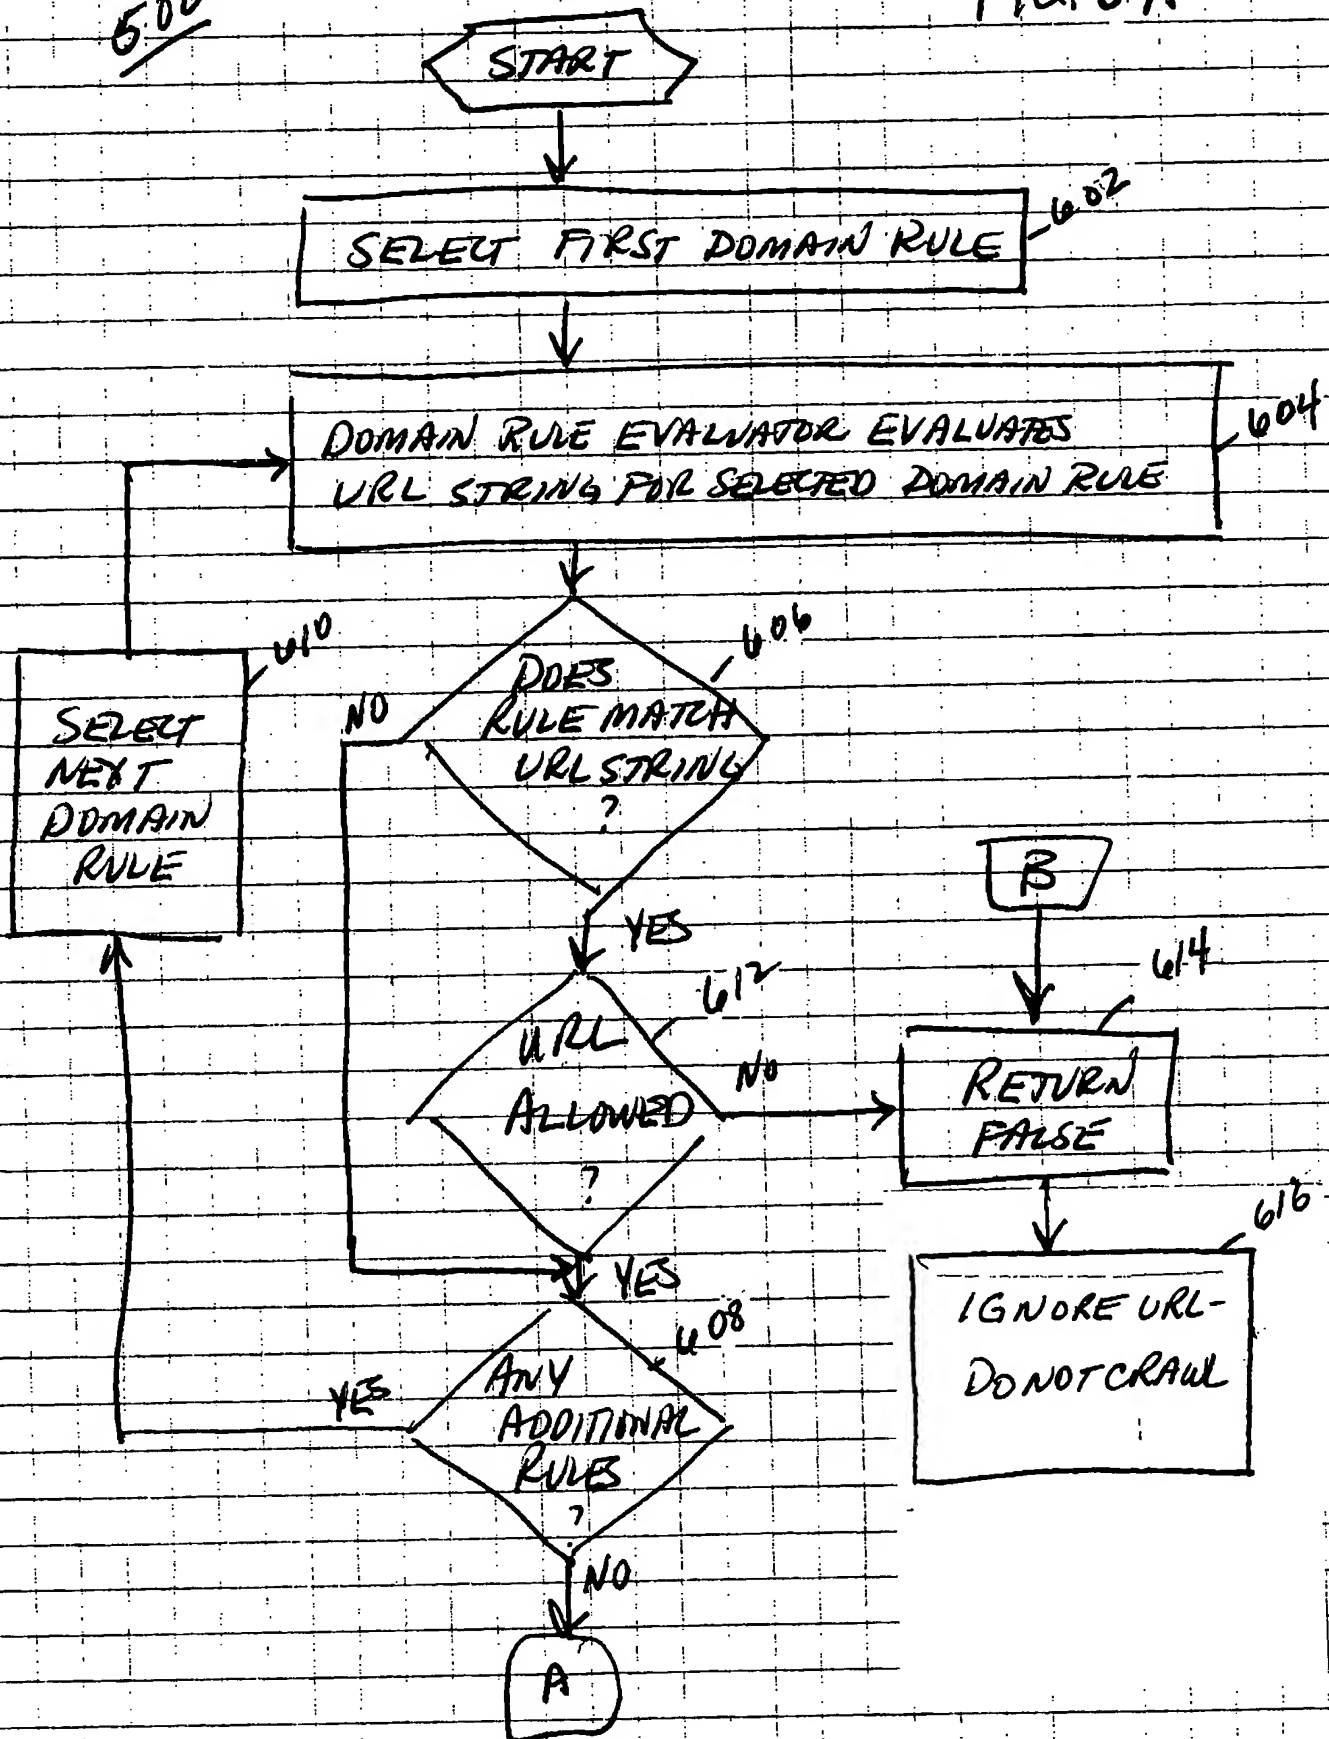 500
START
602
SELECT FIRST DOMAIN RULE
604
DOMAIN RULE EVALUATOR EVALUATES
URL STRING FOR SELECTED DOMAIN RULE
610
606
SELECT
NEXT
DOMAIN
RULE
NO
DOES
RULE MATCH
URL STRING
?
YES
B
612
614
URL
ALLOWED
?
NO
RETURN
FALSE
616
YES
IGNORE URL-
DO NOT CRAWL
608
YES
ANY
ADDITIONAL
RULES
?
NO
A